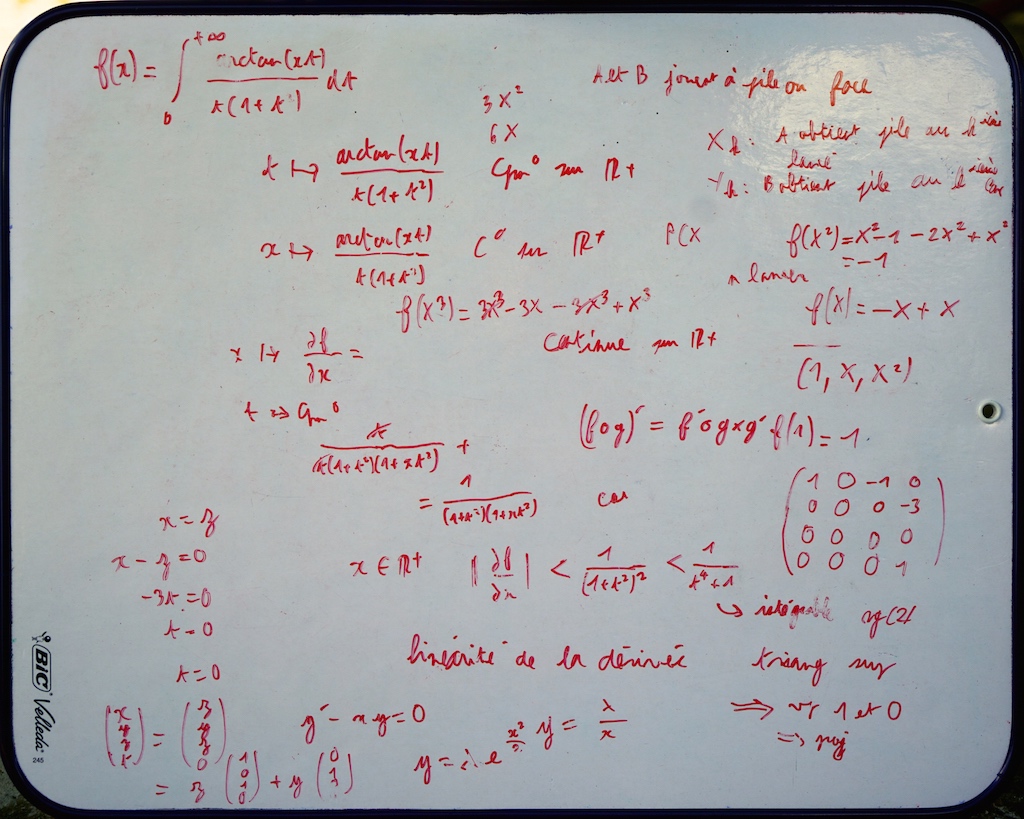 f(x) = ∫₀^{+∞} arctan(xt) / t(1+t²) dt
3X²
6X
A et B jouent à pile ou face
X_k : A obtient pile au k ième lancé
Y_k : B obtient pile au k ième
t ↦ arctan(xt) / t(1+t²) Cpm⁰ sur ℝ+
x ↦ arctan(xt) / t(1+t²) C⁰ sur ℝ+
P(X
n lancer
f(X²) = X² - 1 - 2X² + X²
= -1
f(X³) = 3X³ - 3X - 3X³ + X³
f(X) = -X + X
continue sur ℝ+
(1, X, X²)
x ↦ ∂f/∂x =
t ↦ Cpm⁰
t / t(1+t²)(1+xt²) +
(fog)' = f'og×g'
f(1) = -1.
= 1 / (1+t²)(1+xt²) car
1 0 -1 0
0 0 0 -3
0 0 0 0
0 0 0 1
x = z
x - z = 0
-3t = 0
t = 0
t = 0
x ∈ ℝ+ |∂f/∂x| < 1/(1+t²)² < 1/t⁴+1
↳ intégrable
rg(2)
linéarité de la dérivée
triang sup
⇒ vp 1 et 0
⇒ proj
(x y z t) = (z y z 0)
= z (1 0 1 0) + y (0 1
y' - xy = 0
y = λe^{x²/2}
y = λ/x
BIC Velleda
245